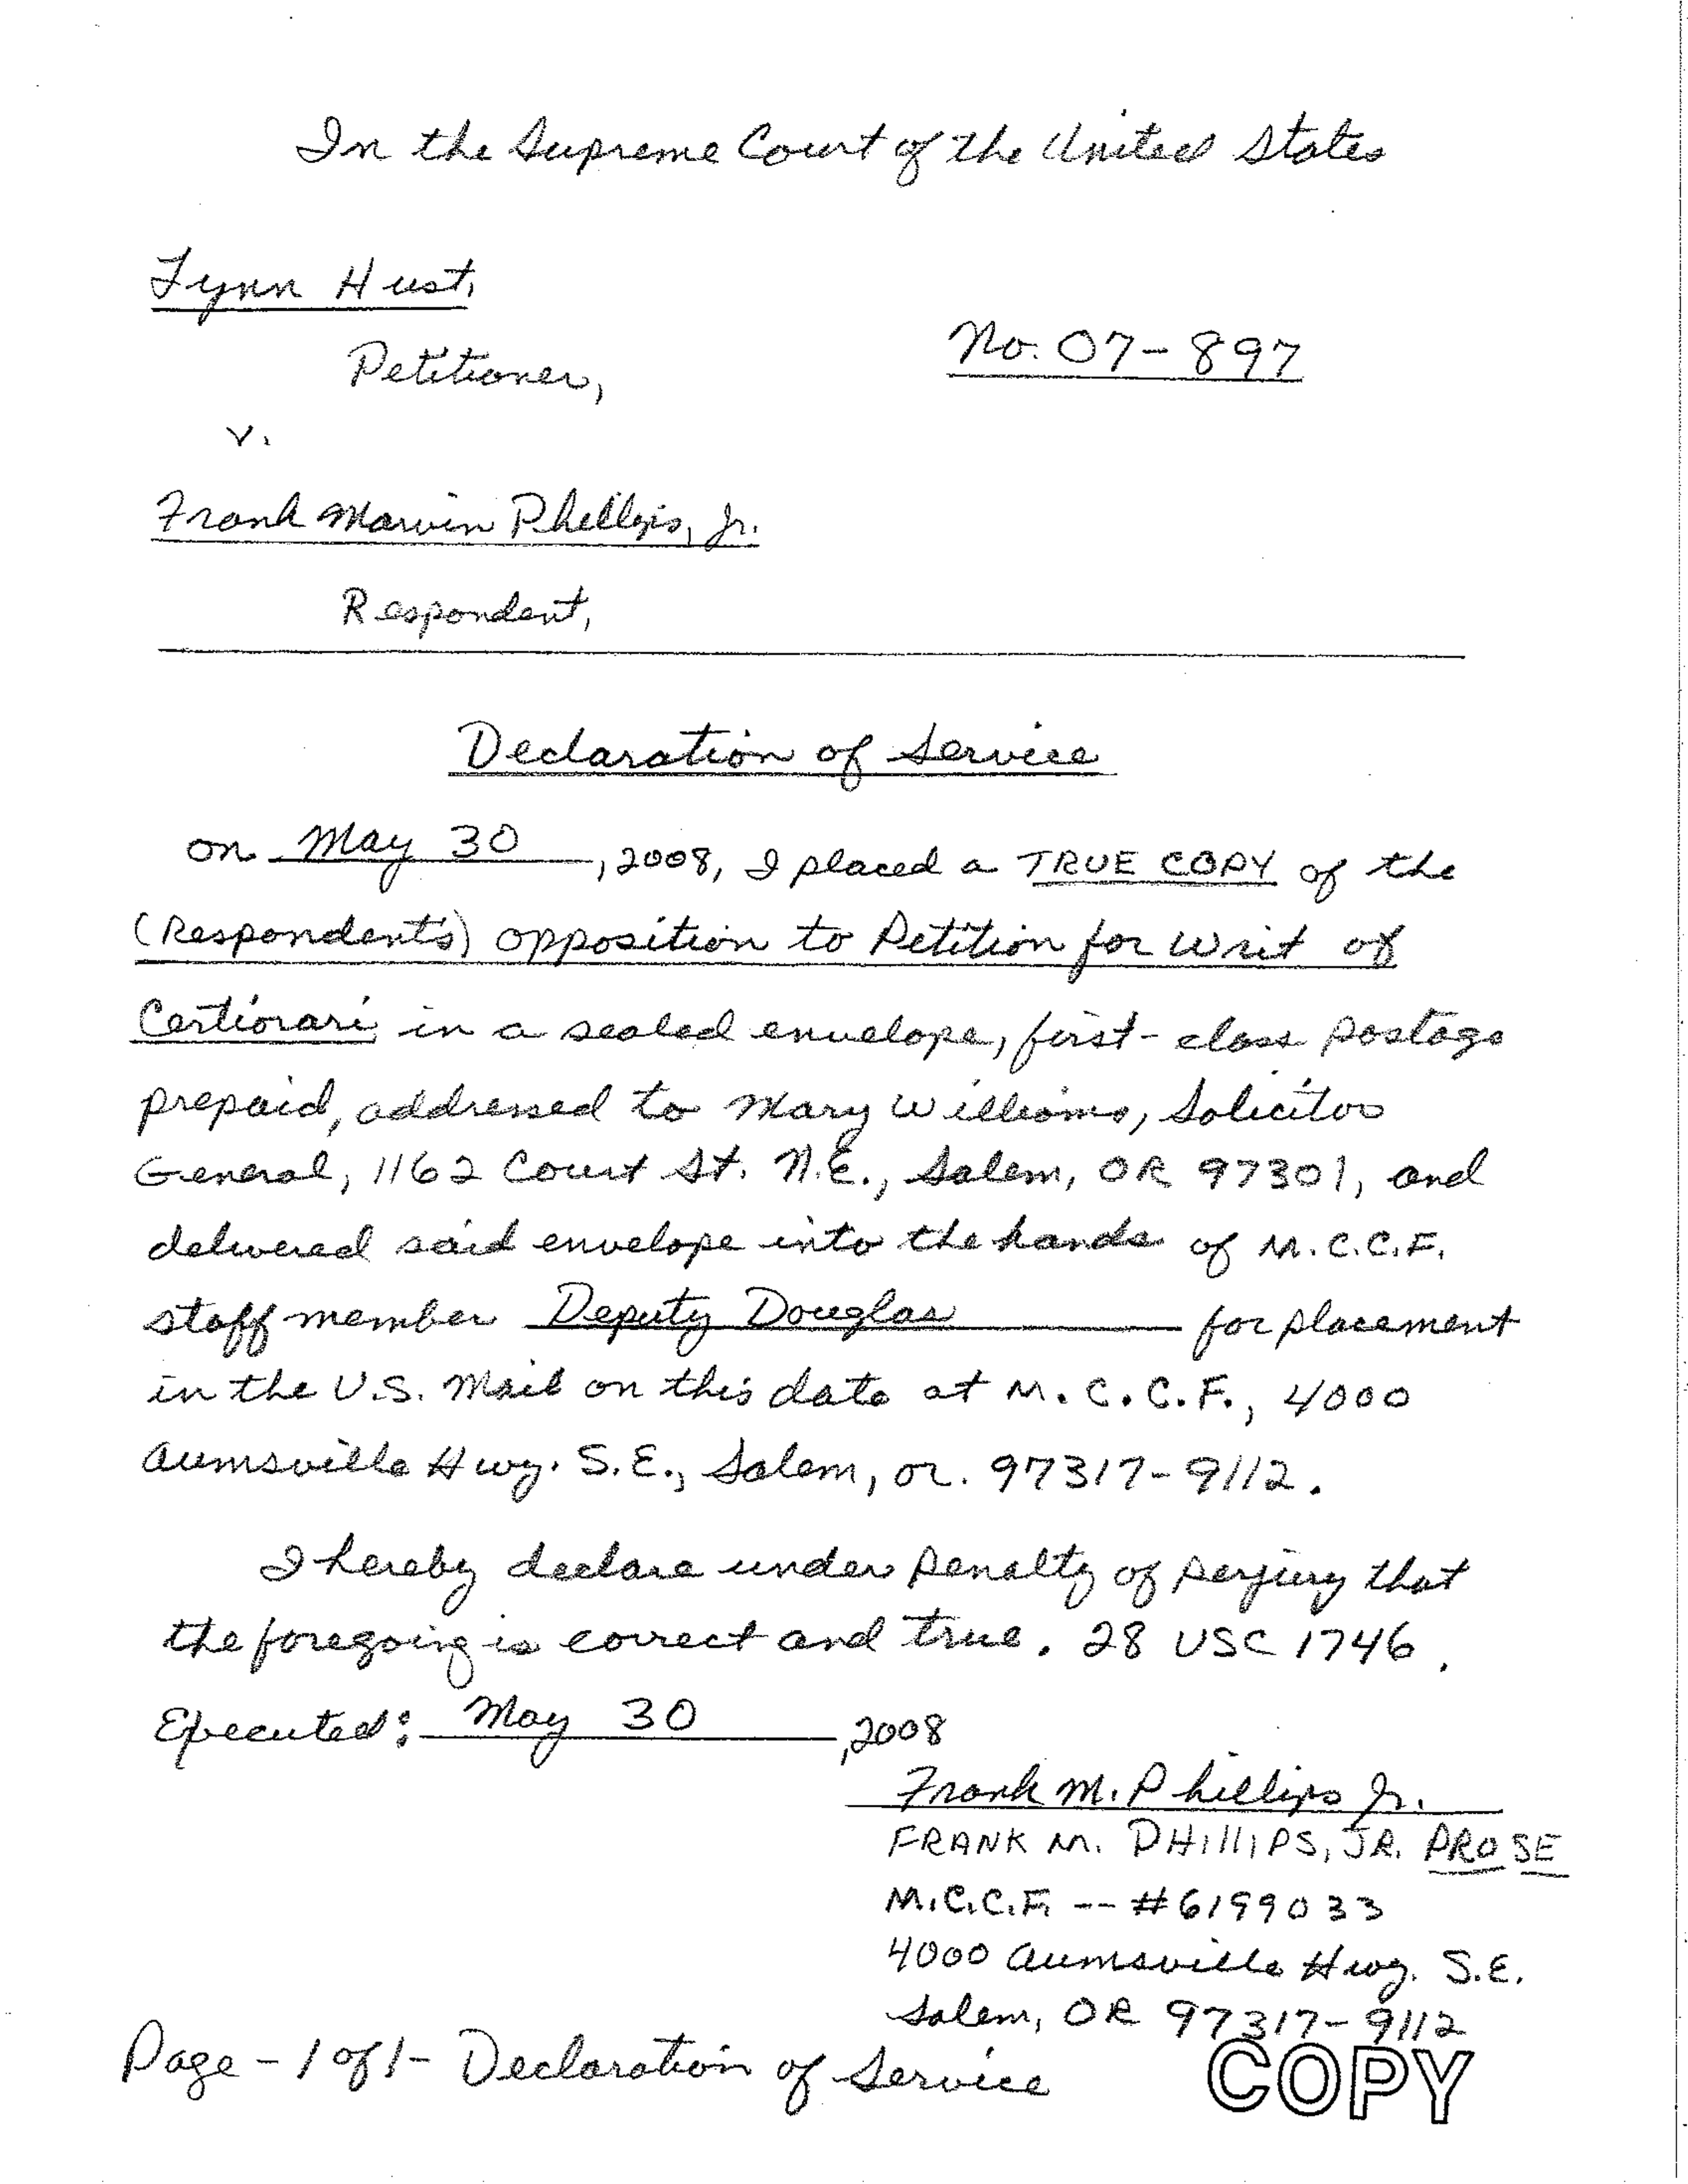 In the Supreme Court of the United States
Lynn Hust,
Petitioner,
No. 07-897
v.
Frank Marvin Phillips, Jr.
Respondent,
Declaration of Service
on May 30, 2008, I placed a TRUE COPY of the
(Respondent's) opposition to Petition for Writ of
Certiorari in a sealed envelope, first-class postage
prepaid, addressed to Mary Williams, Solicitor
General, 1162 Court St. N.E., Salem, OR 97301, and
delivered said envelope into the hands of M.C.C.F.
staff member Deputy Douglas for placement
in the U.S. Mail on this date at M.C.C.F., 4000
Aumsville Hwy. S.E., Salem, or. 97317-9112.
I hereby declare under penalty of perjury that
the foregoing is correct and true. 28 USC 1746.
Executed: May 30, 2008
Frank M. Phillips Jr.
FRANK M. PHillIPS, JR. PRO SE
M.C.C.F. -- #6199033
4000 Aumsville Hwy. S.E.
Salem, OR 97317-9112
Page - 1 of 1 - Declaration of Service
COPY